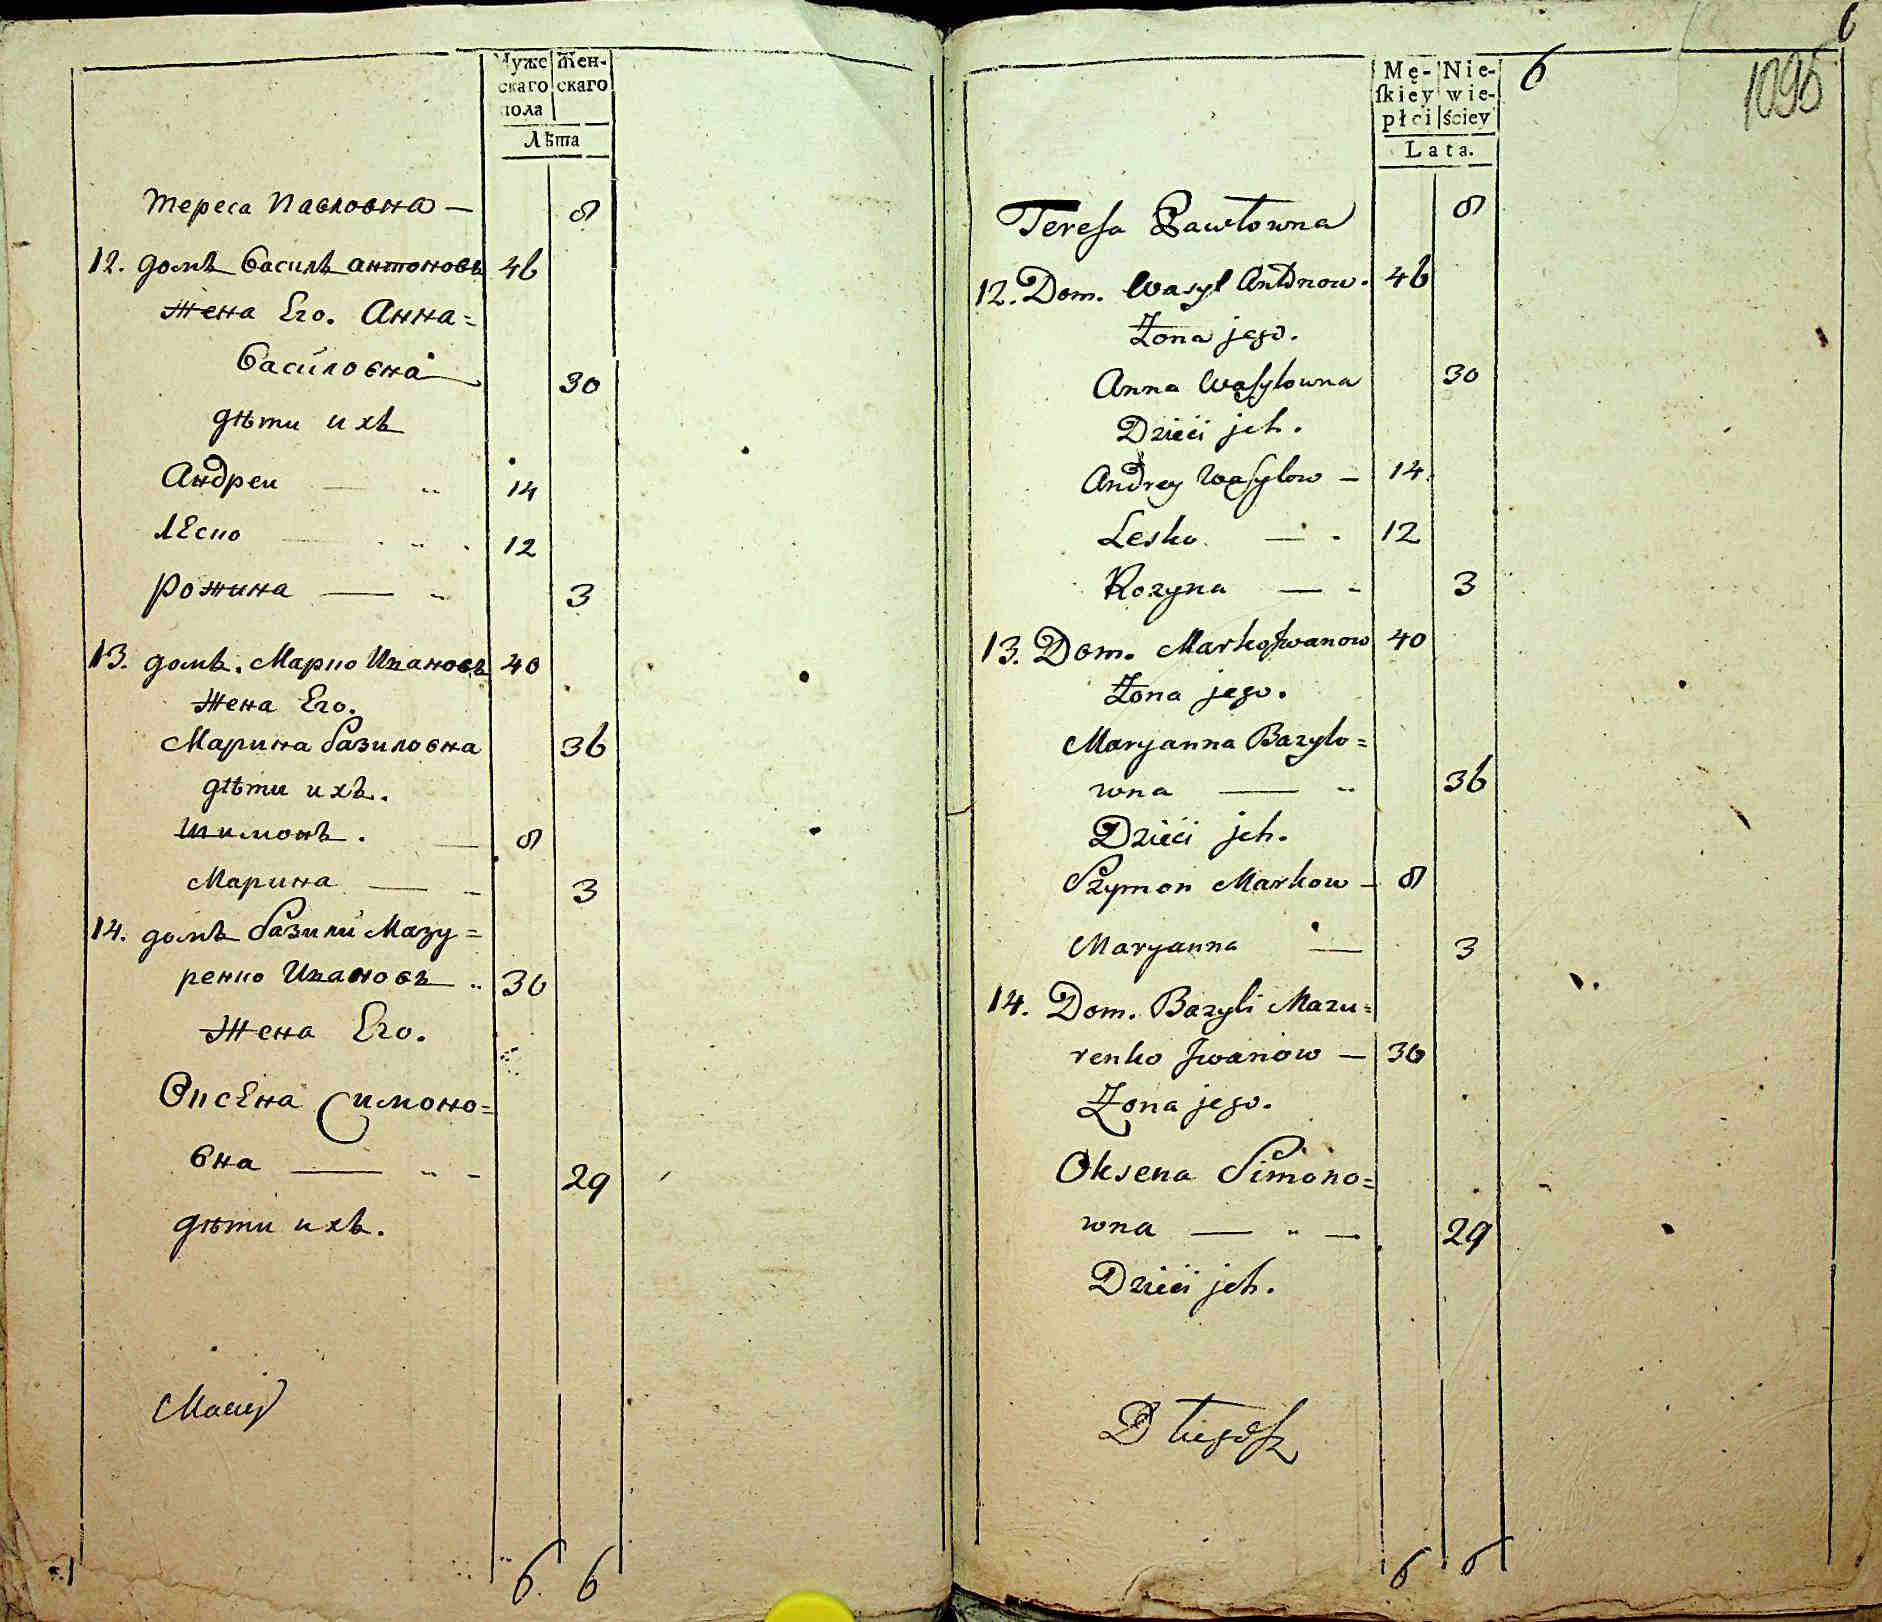 Муже Жен-
скаго скаго
пола
Лѣта
Тереса Павловна — 8
12. домъ Василь антоновъ 46
Жена Его. Анна=
Василовна 30
дѣти ихъ
Андреи — 14
Леско 12
Рожина — 3
13. домъ. Марко Ивановъ 40
Жена Его.
Марина базиловна 36
дѣти ихъ.
Шимонъ. — 8
Марина — 3
14. домъ базили Мазу=
ренко Ивановъ 36
Жена Его.
Оксена Симоно=
вна — 29
дѣти ихъ.
Maciej
6 6
6
Mę- Nie- 6
ſkiey wie-
płci ściey
Lata.
1095
Tereſa Pawłowna 8
12. Dom. Wasyl Antonow. 46
Żona jego.
Anna Waſylowna 30
Dzieci jch.
Andrey Waſylow — 14
Lesko — 12
Rozyna — 3
13. Dom. Marko Jwanow 40
Żona jego.
Maryanna Bazylo=
wna — 36
Dzieci jch.
Szymon Markow — 8
Maryanna — 3
14. Dom. Bazyli Mazu=
renko Jwanow — 36
Żona jego.
Oksena Simono=
wna — 29
Dzieci jch.
Długosz
6 6